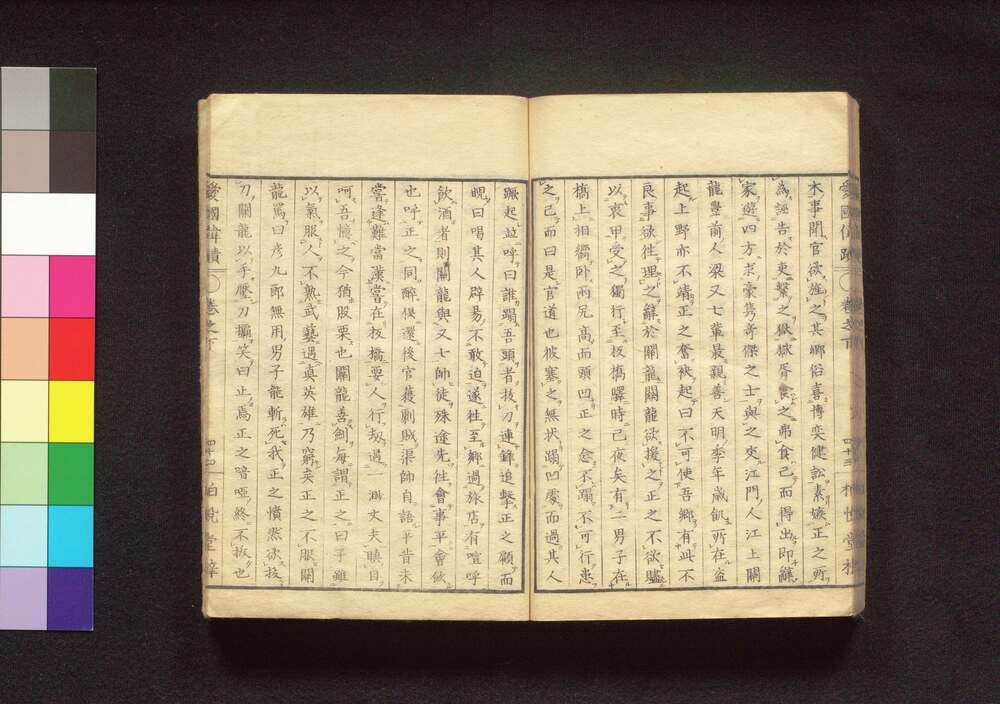 愛國偉蹟 卷之下
木事聞官欲旌之其鄉俗喜博奕健訟素嫉正之所
為誣告於吏繫之獄獄胥食之弗食已而得出即辭
家遊四方求豪雋奇傑之士與之交江門人江上關
龍豐前人梁又七輩最親善天明季年歲飢所在盜
起上野亦不靖正之奮袂起曰不可使吾鄉有此不
良事欲往理之辭於關龍關龍欲援之正之不欲
以衷甲受之獨行至板橋驛時已夜矣有二男子在
橋上相嚮臥兩尻高而頭凹正之念不蹋不可行患
之已而曰是官道也彼塞之無狀蹋凹處而過其人
蹶起並呼曰誰蹋吾頭者拔刀連鋒追擊正之顧而
睨曰喝其人辟易不敢迫遂往至鄉過旅店有喧呼
飲酒者則關龍與又七帥徒殊途先往會事平會飲
也呼正之同醉俱還後官獲剽賊渠帥自語平昔未
嘗逢難當漢嘗在板橋要人行劫過一 丈夫瞋目
呵吾憶之今猶股栗也關龍善劍每謂正之曰子雖
以氣服人不熟武藝遇真英雄乃窮矣正之不服關
龍罵曰彥九郎無用男子能斬死我正之憤然欲拔
刀關龍以手壓刀 笑曰止焉正之喑啞終不拔也
愛國偉蹟 卷之下 四十 堂梓